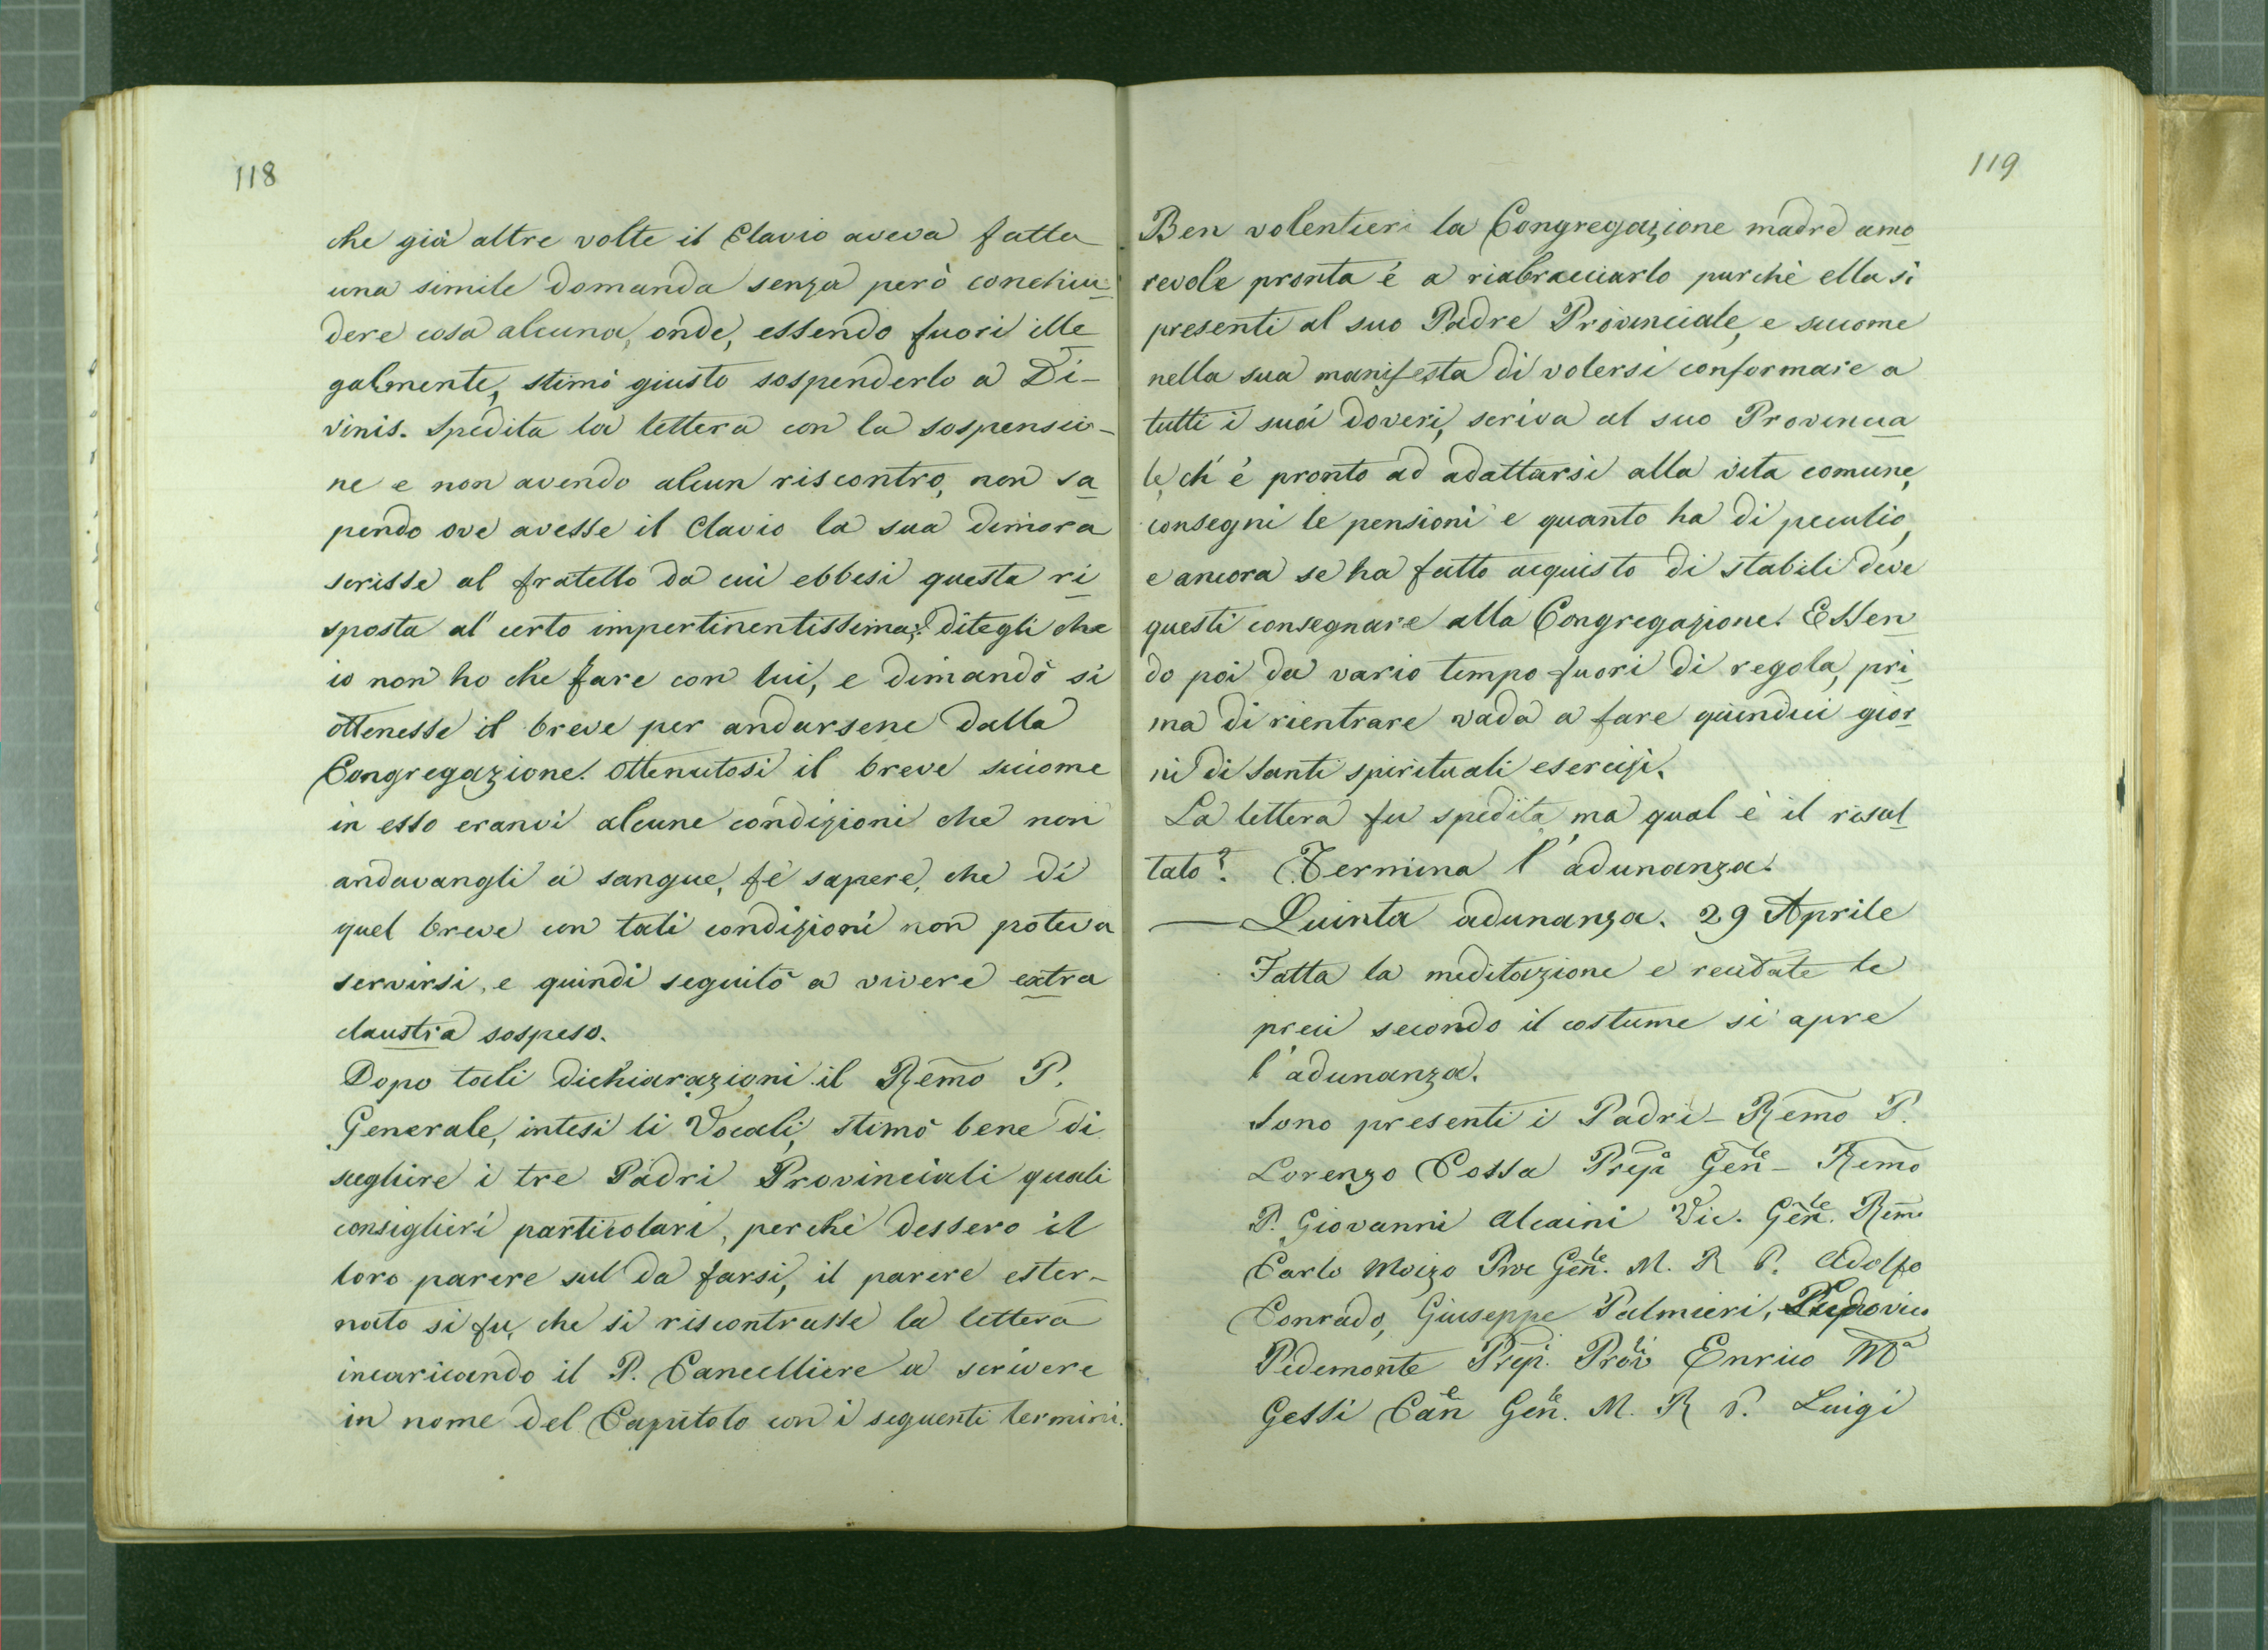 118
che già altre volte il Clavio aveva fatta
una simile domanda senza però conchiu=
dere cosa alcuna, onde, essendo fuori ille
galmente, stimò giusto sospenderlo a Di-
vinis. Spedita la lettera con la sospensio-
ne e non avendo alcun riscontro, non sa
pendo ove avesse il Clavio la sua dimora
scrisse al fratello da cui ebbesi questa ri
sposta al certo impertinentissima: ditegli che
io non ho che fare con lui, e dimandò si
ottenesse il breve per andarsene dalla
Congregazione. Ottenutosi il breve siccome
in esso eranvi alcune condizioni che non
andavangli a sangue, fè sapere, che di
quel breve con tali condizioni non poteva
servirsi, e quindi seguitò a vivere extra
claustra sospeso.
Dopo tali dichiarazioni il Remo P.
Generale, intesi li Vocali, stimò bene di
scegliere i tre Padri Provinciali quali
consiglieri particolari, perchè dessero il
loro parere sul da farsi, il parere ester-
nato si fu, che si riscontrasse la lettera
incaricando il P. Cancelliere a scrivere
in nome del Capitolo con i seguenti termini.
119
Ben volentieri la Congregazione madre amo
revole pronta è a riabracciarlo purchè ella si
presenti al suo Padre Provinciale, e siccome
nella sua manifesta di volersi conformare a
tutti i suoi doveri, scriva al suo Provincia
le, ch'è pronto ad adattarsi alla vita comune,
consegni le pensioni e quanto ha di peculio,
e ancora se ha fatto acquisto di stabili deve
questi consegnare alla Congregazione. Essen
do poi da vario tempo fuori di regola, pri
ma di rientrare vada a fare quindici gior
ni di Santi spirituali esercizi.
La lettera fu spedita, ma qual è il risul
tato? Termina l'adunanza.
— Quinta adunanza. 29 Aprile
Fatta la meditazione e recitate le
preci secondo il costume si apre
l'adunanza.
Sono presenti i Padri - Remo P.
Lorenzo Cossa Prepo Genle - Remo
P. Giovanni Alcaini Vic. Genle. Remo
Carlo Moizo Proc Genle. M. R P. Adolfo
Conrado, Giuseppe Palmieri, Ludovico
Pidemonte Prepi. Provi Enrico Ma
Gessi Cane Genle. M. R P. Luigi